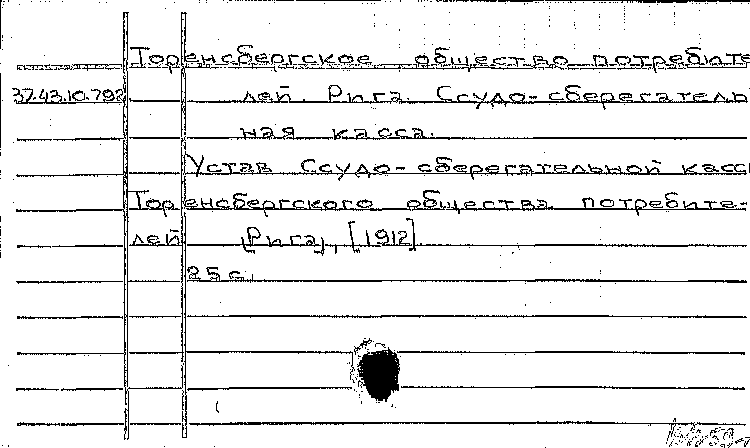 Торенсбергское общество потребите
37.43.10.792 лей. Рига. Ссудо-сберегатель
ная касса.
Устав Ссудо-сберегательной касс
Торенсбергского общества потребите-
лей [Рига], [1912]
25 с.